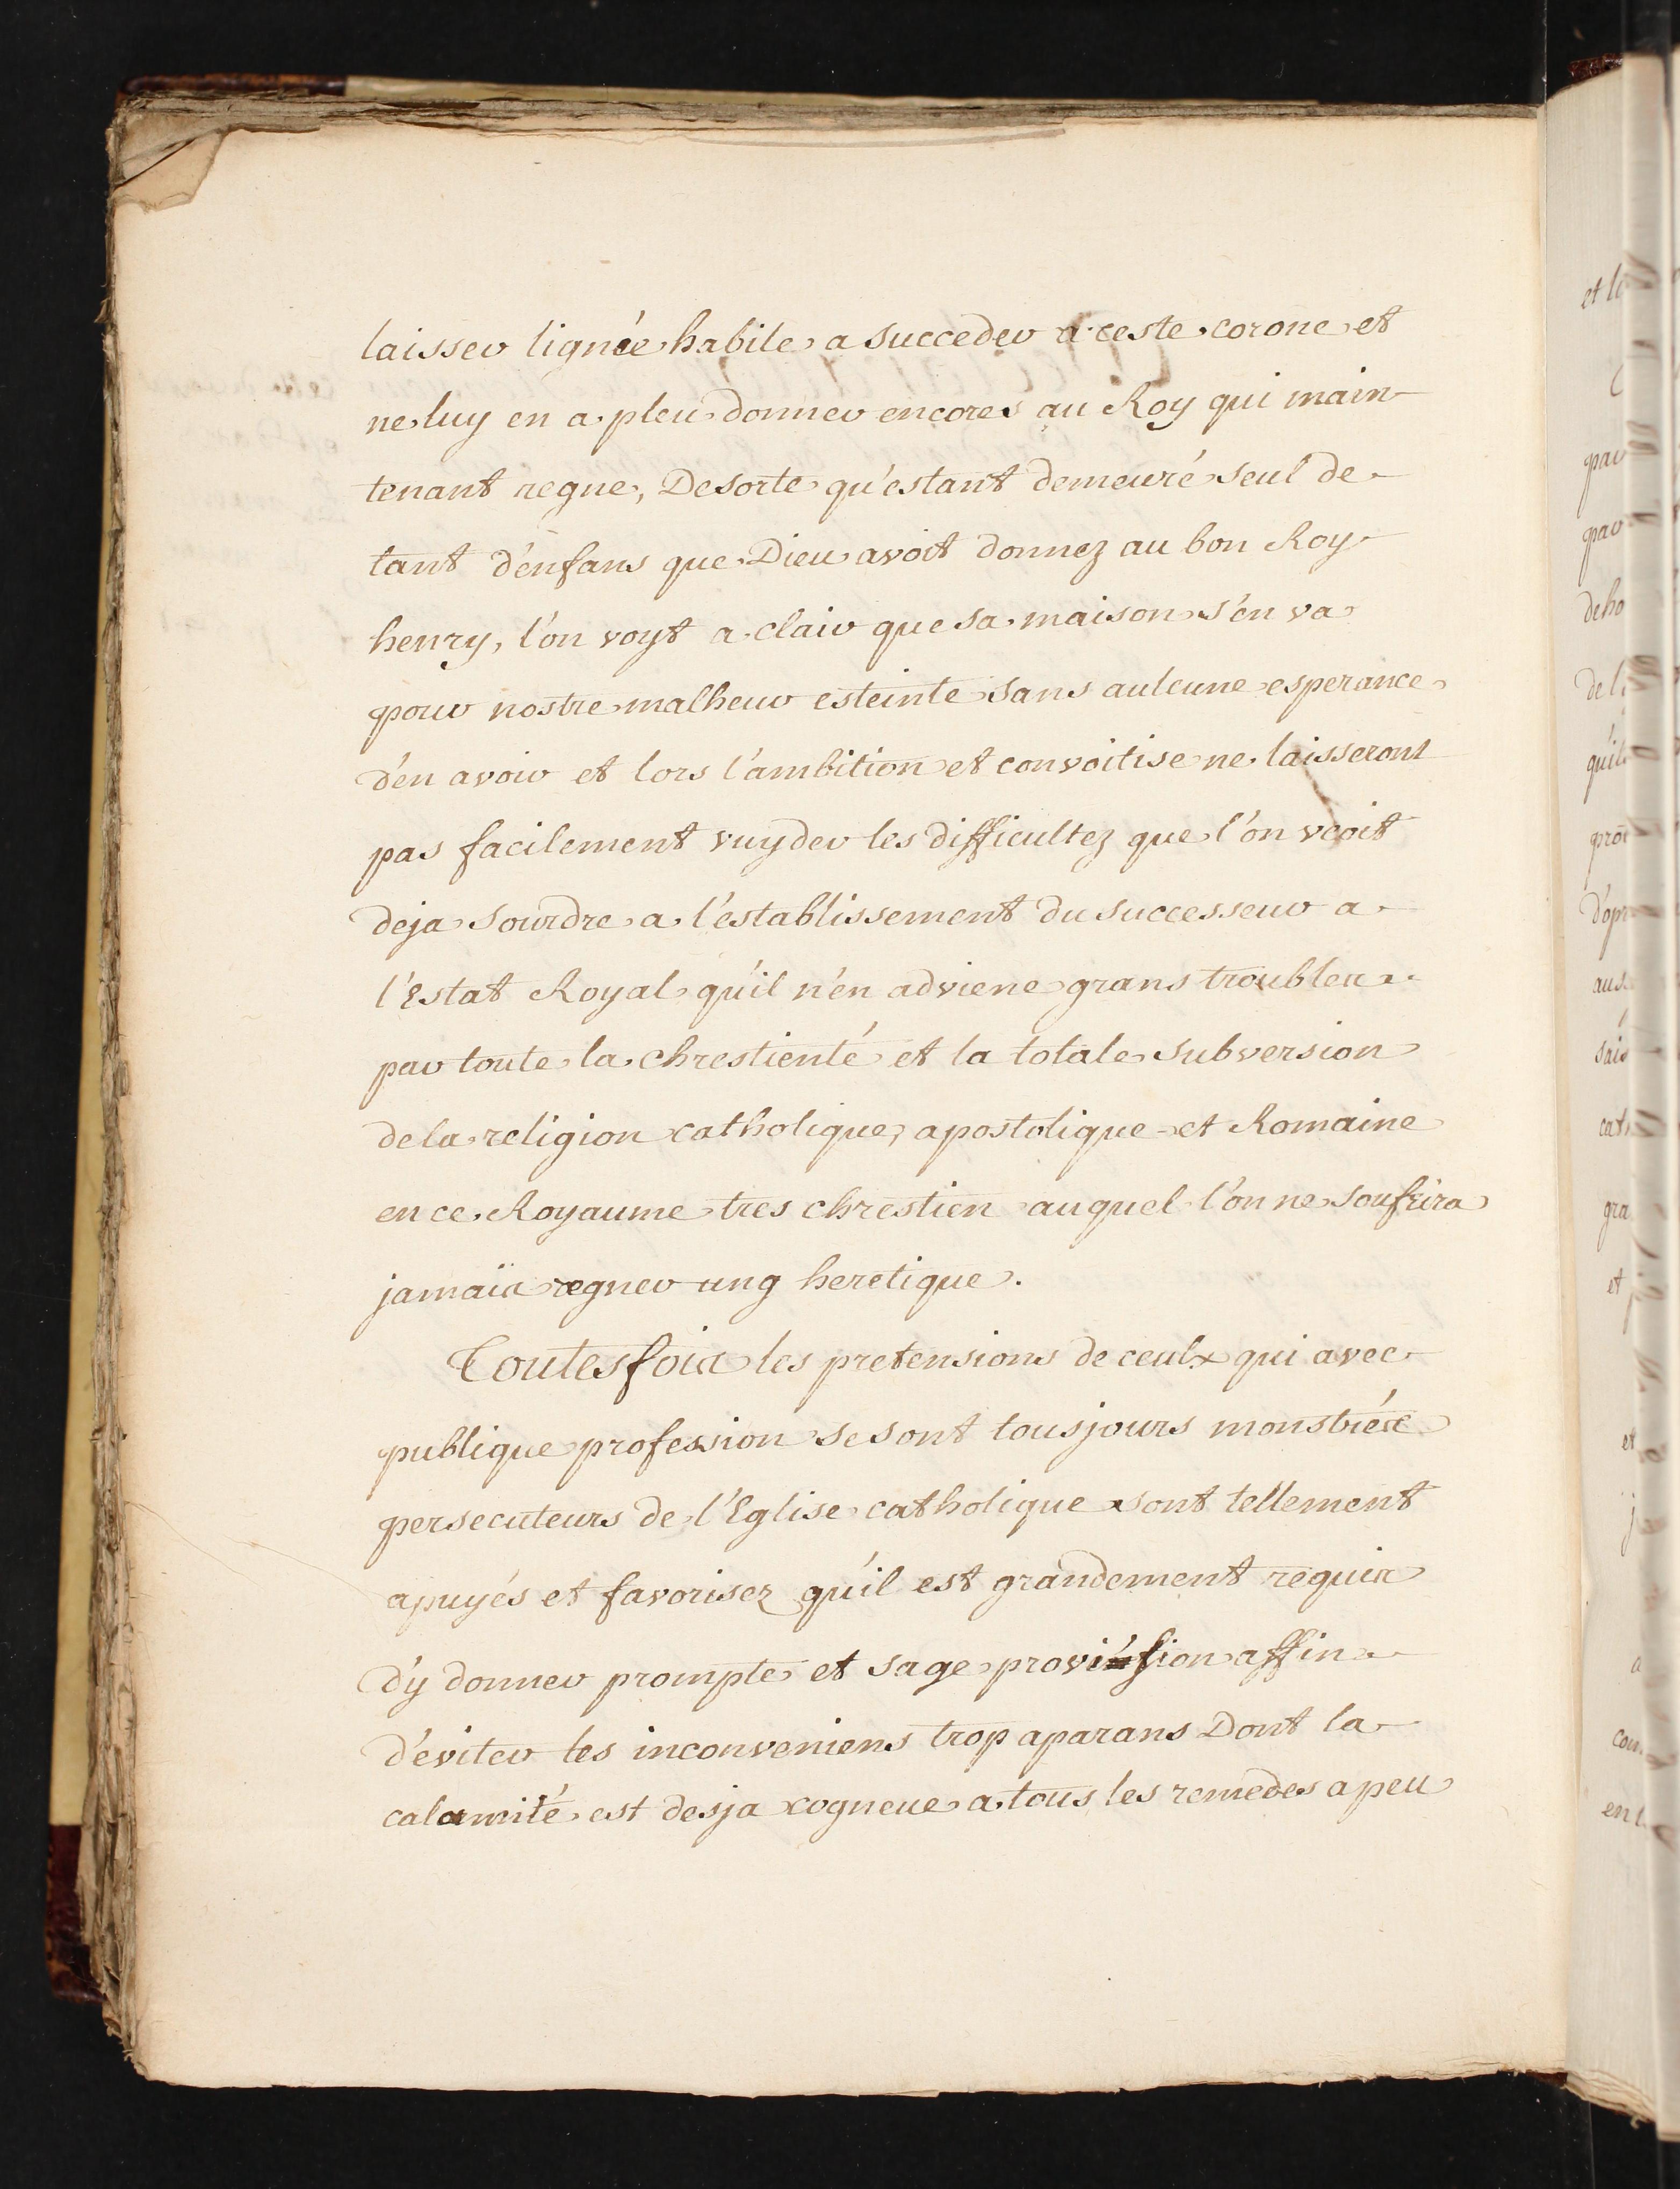 laisser lignée habile a succeder a ceste corone et
ne luy en a pleu donner encores au Roy qui main
tenant regne, Desorte qu'estant demeuré seul de
tant d'enfans que Dieu avoit donnez au bon Roy
henry, l'on voyt a clair que sa maison s'en va
pour nostre malheur esteinte sans aulcune esperance
d'en avoir et lors l'ambition et convoitise ne laisseront
pas facilement vuyder les difficultez que l'on veoit
deja sourdre a l'establissement du successeur a
l'Estat Royal qu'il n'en adviene grans troubles
par toute la chrestienté et la totale subversion
de la religion catholique, apostolique et Romaine
en ce Royaume tres chrestien auquel l'on ne soufrira
jamaïs regner ung heretique.
Toutesfois les pretensions de ceulx qui avec
publique profession se sont tousjours monstrés
persecuteurs de l'Eglise catholique sont tellement
apuyés et favorisez qu'il est grandement requis
d'y donner prompte et sage provision affin
d'eviter les inconveniens trop aparans Dont la
calamité est desja cogneue a tous les remedes a peu
et
par
par
deho
del
quil
aus
cat
gra
et
et
a
com
en l